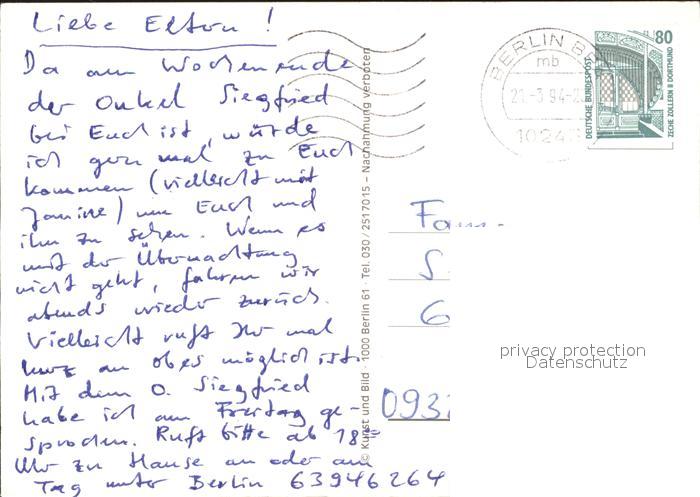 Liebe Eltern!
Da am Wochenende
der Onkel Siegfried
bei Euch ist, würde
ich gern mal zu Euch
kommen (vielleicht mit
Janine) um Euch und
ihn zu sehen. Wenn es
mit der Übernachtung
nicht geht, fahren wir
abends wieder zurück.
Vielleicht ruft Ihr mal
kurz an ob es möglich ist.
Mit dem O. Siegfried
habe ich am Freitag ge-
sprochen. Ruft bitte ab 18°°
Uhr zu Hause an oder am
Tag unter Berlin 63946264
© Kunst und Bild · 1000 Berlin 61 · Tel. 030/2517015 – Nachahmung verboten
BERLIN
mb
21.-3.94
1024
80
DEUTSCHE BUNDESPOST
ZECHE ZOLLERN II DORTMUND
Fam.
S
6
093
privacy protection
Datenschutz